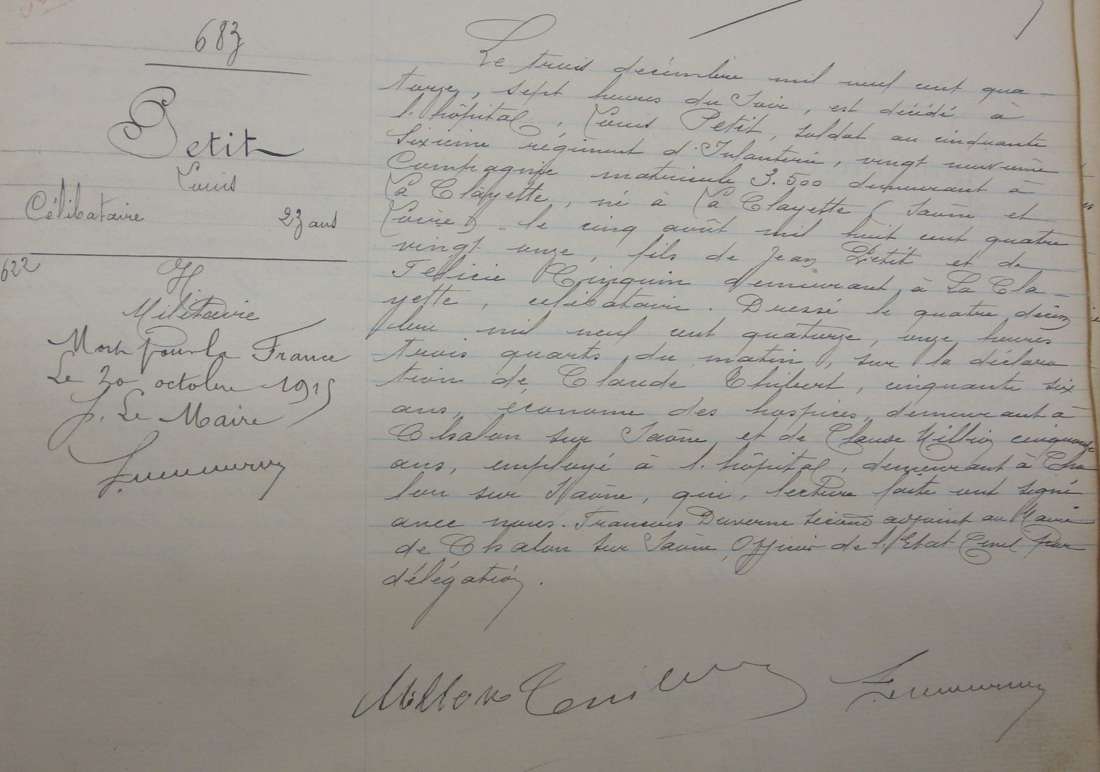 683
Petit
Louis
Célibataire 23 ans
622
Militaire
Mort pour la France
Le 30 octobre 1915
P. Le Maire
Le trois décembre mil neuf cent qua-
torze, sept heures du soir, est décédé à
l'hôpital, Louis Petit, soldat au cinquante
sixième régiment d'Infanterie, vingt neuvième
Compagnie matricule 3.500 demeurant à
La Clayette, né à La Clayette (Saône et
Loire) le cinq août mil huit cent quatre
vingt onze, fils de Jean Petit et de
Félicie demeurant à La Cla-
yette, célibataire. Dressé le quatre décem
bre mil neuf cent quatorze, onze heures
trois quarts du matin, sur la déclara
tion de Claude Thibert, cinquante six
ans, économe des hospices, demeurant à
Chalon sur Saône, et de Claude Million cinquante
ans, employé à l'hôpital, demeurant à Cha
lon sur Saône, qui, lecture faite ont signé
avec nous. François Duverne second adjoint au Maire
de Chalon sur Saône, Officier de l'Etat Civil par
délégation.
Millon